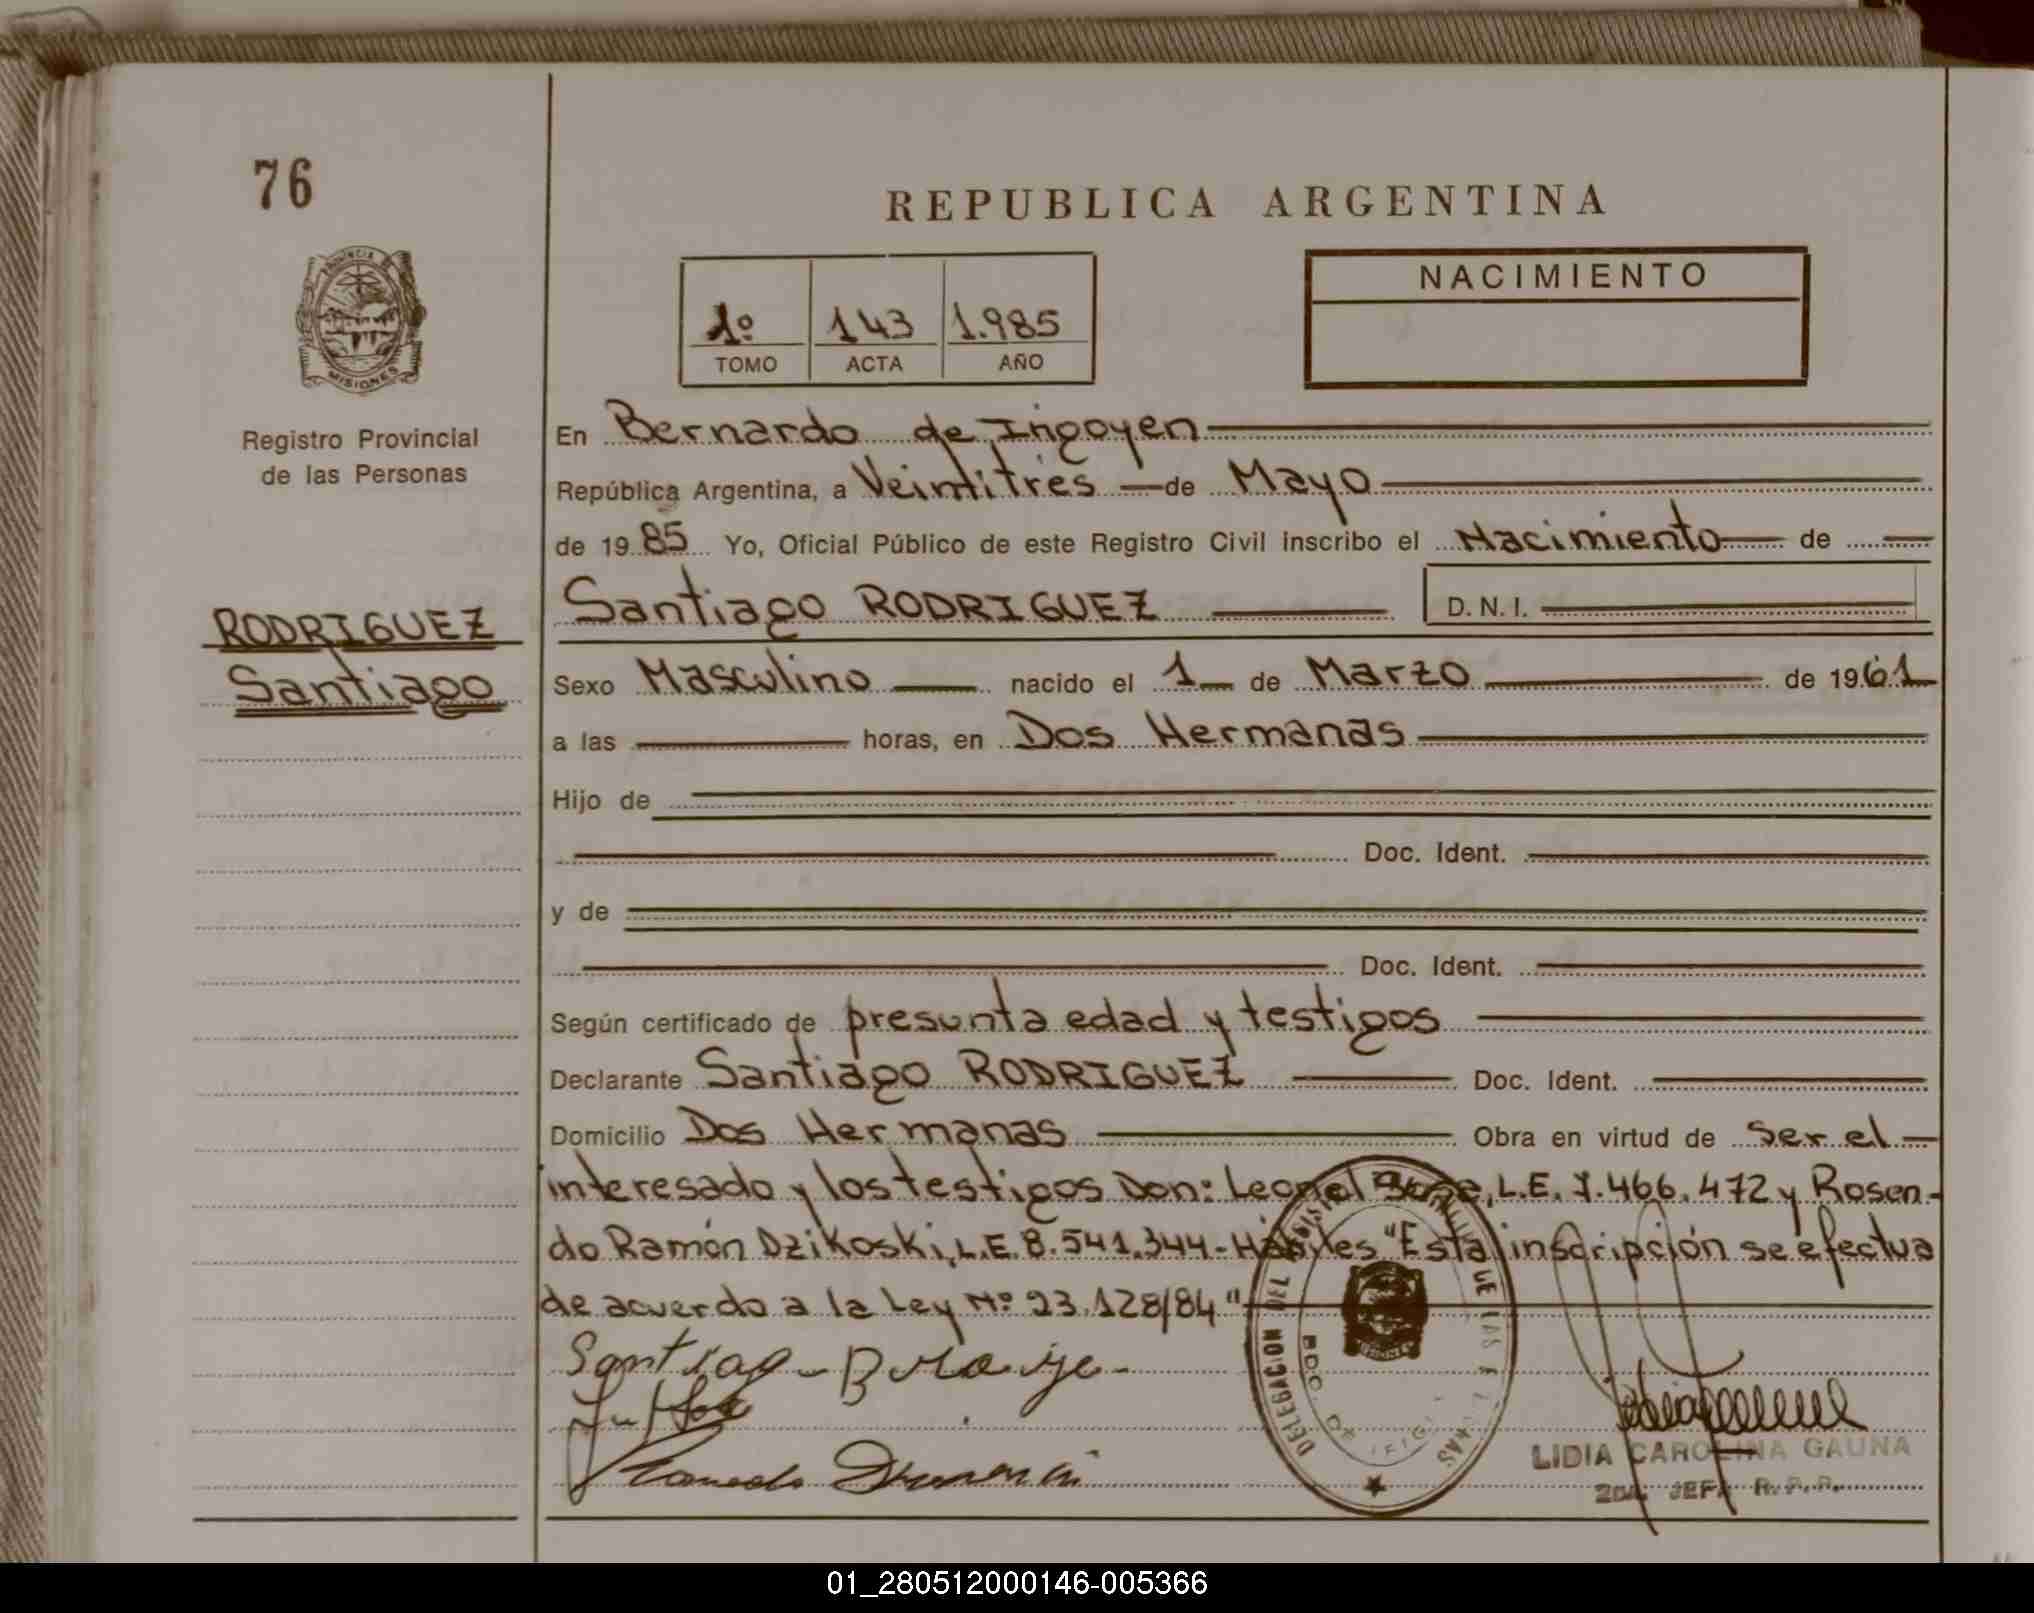 76
REPUBLICA ARGENTINA
PROVINCIA DE
MISIONES
Registro Provincial
de las Personas
1º 143 1.985
TOMO ACTA AÑO
NACIMIENTO
En Bernardo de Irigoyen
República Argentina, a Veintitrés de Mayo
de 1985 Yo, Oficial Público de este Registro Civil inscribo el Nacimiento de
RODRIGUEZ
Santiago
Santiago RODRIGUEZ D.N.I.
Sexo Masculino nacido el 1 de Marzo de 1961
a las horas, en Dos Hermanas
Hijo de
Doc. Ident.
y de
Doc. Ident.
Según certificado de presunta edad y testigos
Declarante Santiago RODRIGUEZ Doc. Ident.
Domicilio Dos Hermanas Obra en virtud de ser el
interesado y los testigos Don: Leonel L.E. 7.466.472 y Rosen-
do Ramón Dzikoski, L.E. 8.541.344- Hábiles "Esta inscripción se efectua
de acuerdo a la Ley Nº 23.128/84"
DELEGACION DEL DE LAS
BDO. DE
Santiago
LIDIA CAROLINA GAUNA
2da. JEFA R.P.P.
01_280512000146-005366